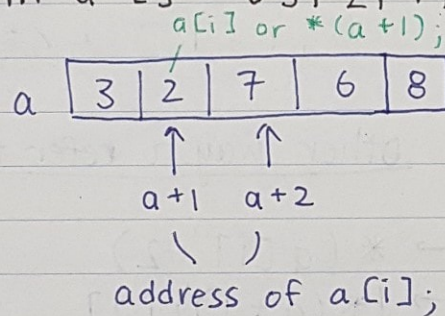 a[i] or *(a+1);
a 3 2 7 6 8
a+1 a+2
address of a[i];